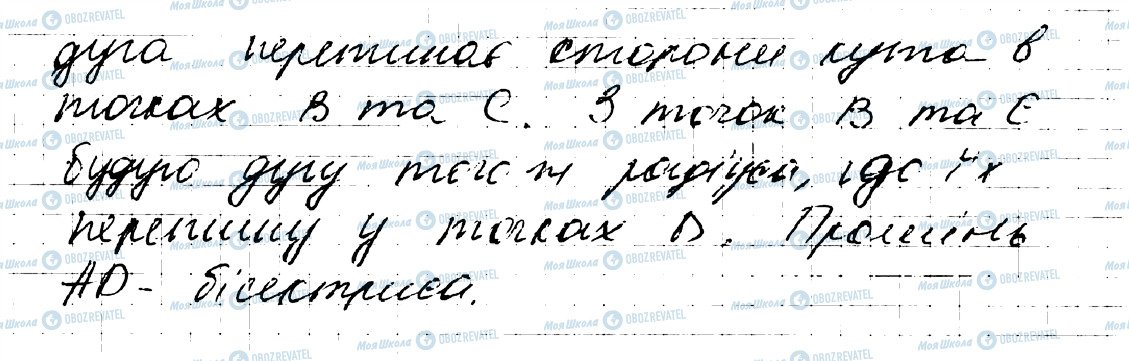 дуга перетинає сторони кута в
точках В та С. З точок В та С
будую дугу того ж радіуса, де їх
перетину у точках D. Промінь
AD - бісектриса.